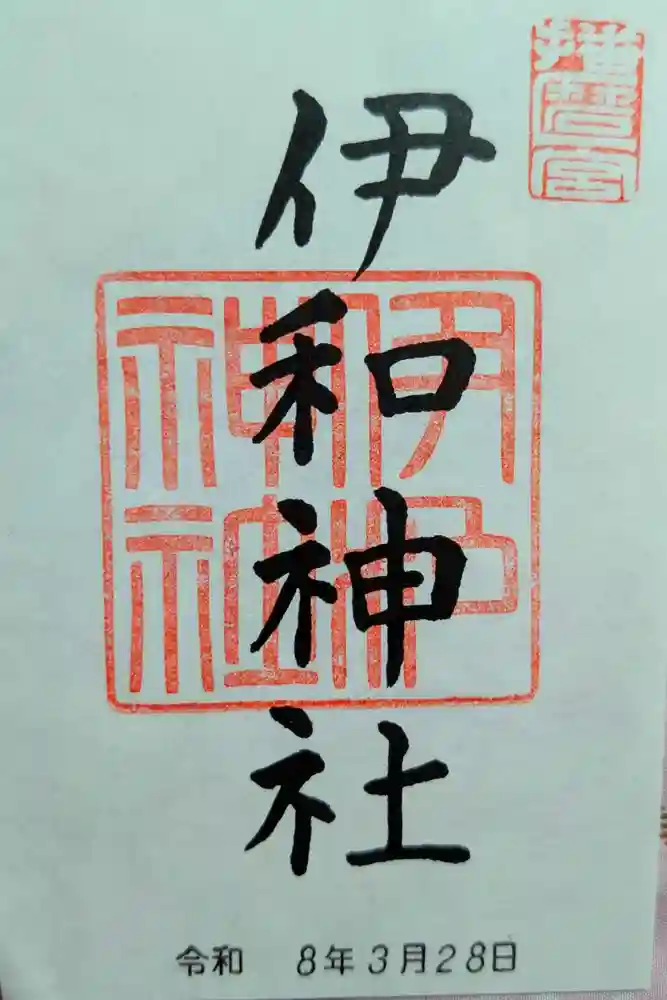 播磨一宮
伊和神社
伊和
神社
令和 8年3月28日